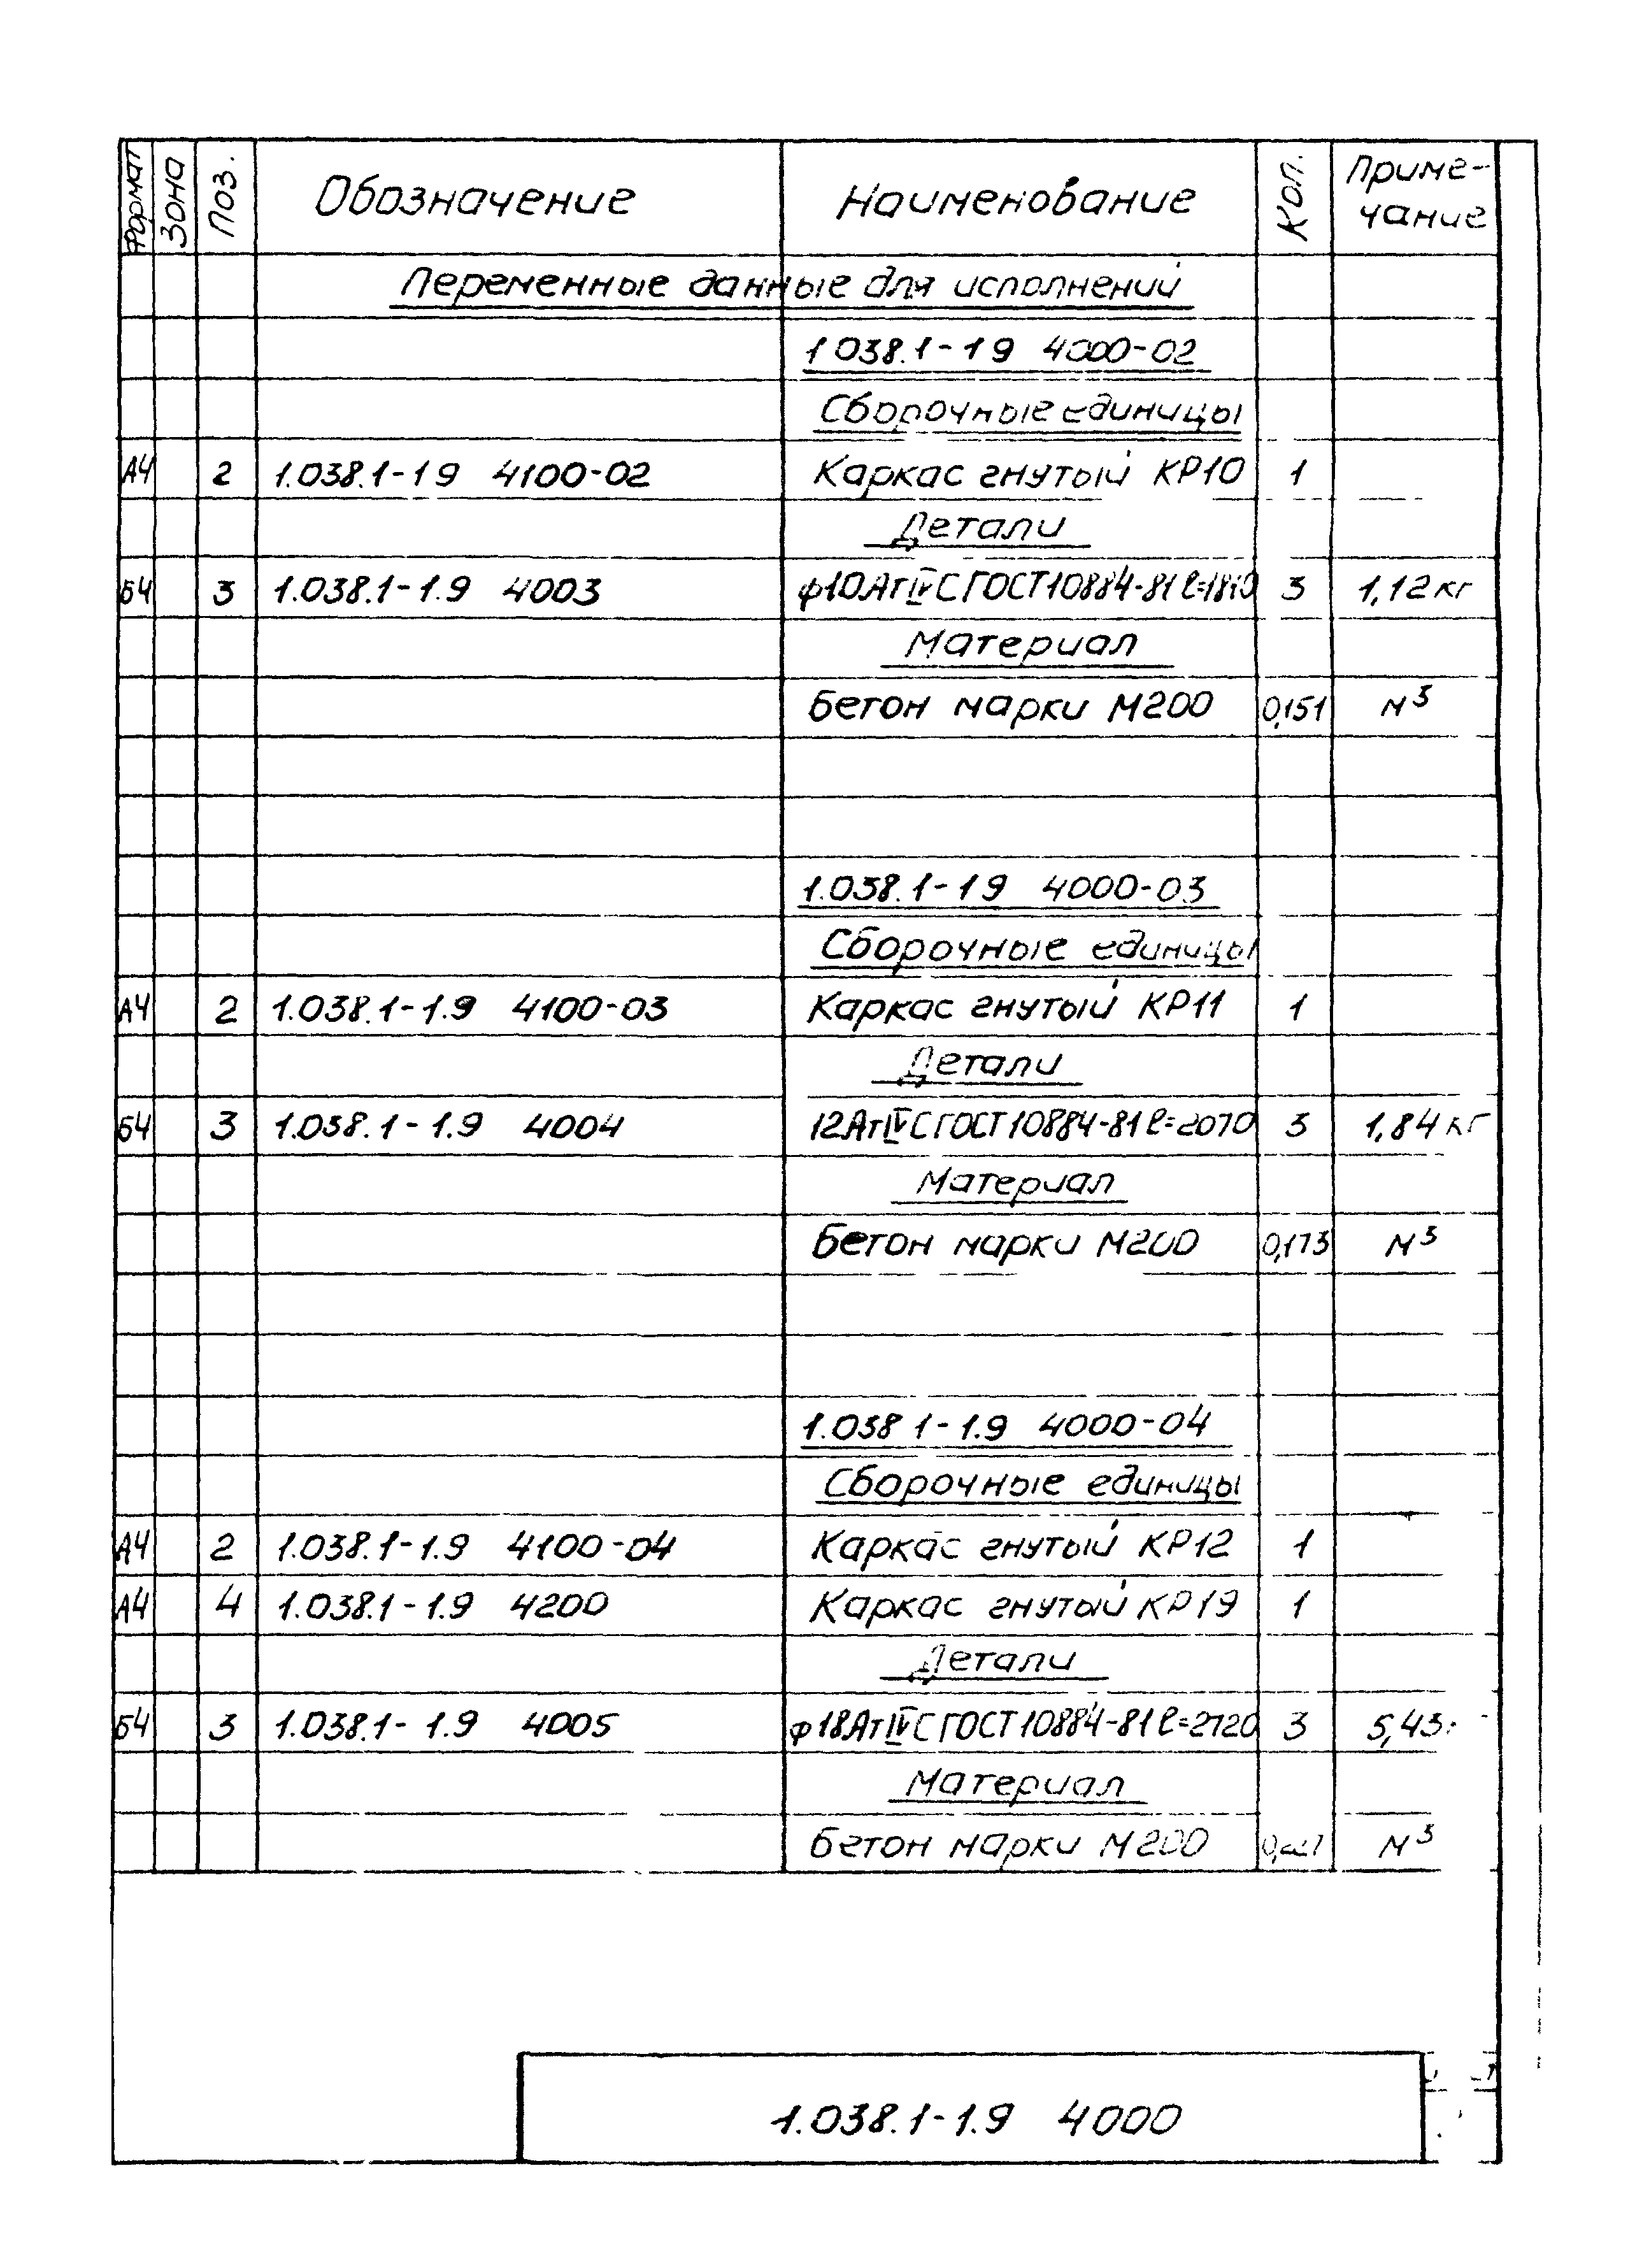 Формат Зона Поз. Обозначение Наименование Кол. Приме-
чание
Переменные данные для исполнений
1 038.1-1 9 4000-02
Сборочные единицы
А4 2 1.038.1-1 9 4100-02 Каркас гнутый КР10 1
Детали
Б4 3 1.038.1-1.9 4003 ф10АтIVС ГОСТ10884-81 3 1,12 кг
Материал
Бетон марки М200 0,151 м³
1.038.1-1 9 4000-03
Сборочные единицы
А4 2 1.038.1-1.9 4100-03 Каркас гнутый КР11 1
Детали
Б4 3 1.038.1-1.9 4004 12АтIVС ГОСТ10884-81 ℓ=2070 3 1,84 кг
Материал
Бетон марки М200 0,173 м³
1.038 1-1.9 4000-04
Сборочные единицы
А4 2 1.038.1-1.9 4100-04 Каркас гнутый КР12 1
А4 4 1.038.1-1.9 4200 Каркас гнутый КР19 1
Детали
Б4 3 1.038.1-1.9 4005 ф18АтIVС ГОСТ10884-81 ℓ=2720 3 5,43
Материал
Бетон марки М200 м³
1.038.1-1.9 4000